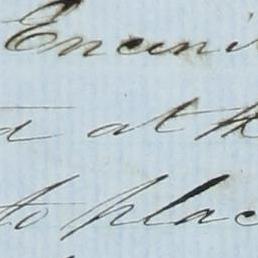 Encini
d at th
to plac